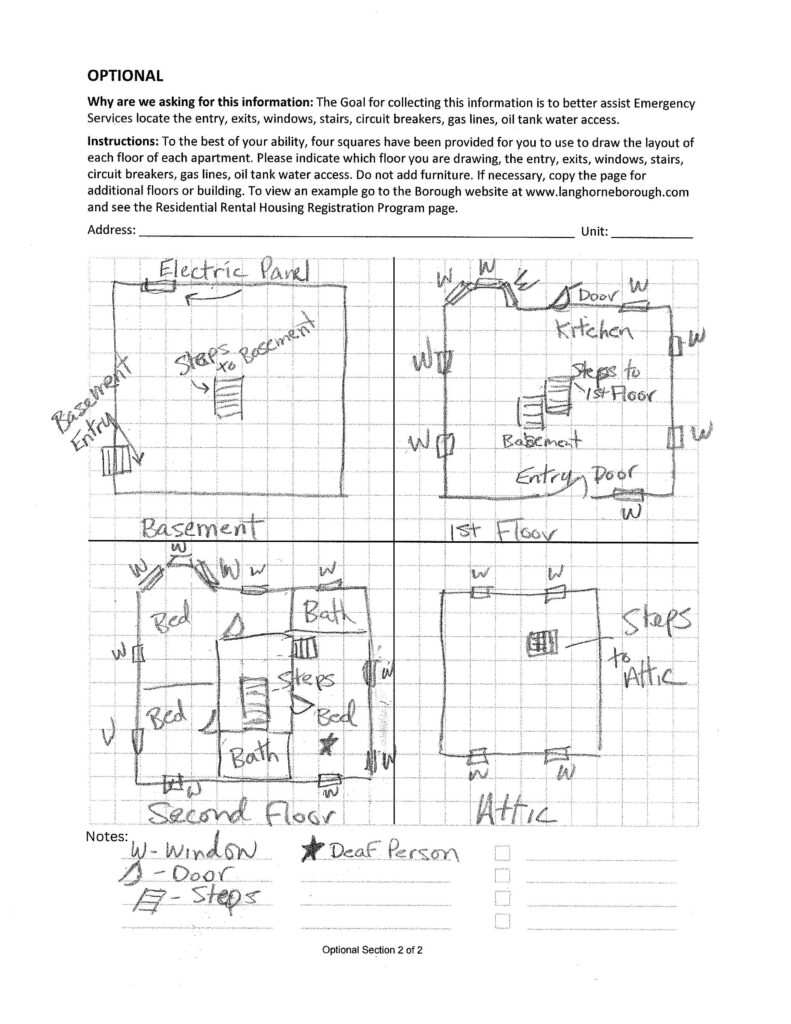 OPTIONAL
Why are we asking for this information: The Goal for collecting this information is to better assist Emergency
Services locate the entry, exits, windows, stairs, circuit breakers, gas lines, oil tank water access.
Instructions: To the best of your ability, four squares have been provided for you to use to draw the layout of
each floor of each apartment. Please indicate which floor you are drawing, the entry, exits, windows, stairs,
circuit breakers, gas lines, oil tank water access. Do not add furniture. If necessary, copy the page for
additional floors or building. To view an example go to the Borough website at www.langhorneborough.com
and see the Residential Rental Housing Registration Program page.
Address: Unit:
Electric Panel
Steps
to Basement
Basement
Entry
Basement
W W W
Door W
Kitchen
W
W
Steps to
1st Floor
Basement
W
W
Entry Door
W
1st Floor
W W W W W
Bed
Bath
W
Steps
W
Bed
Bed
W
Bath
W
W
W
Second Floor
W W
Steps
to
Attic
W W
Attic
Notes:
W - Window
- Door
- Steps
★ Deaf Person
Optional Section 2 of 2